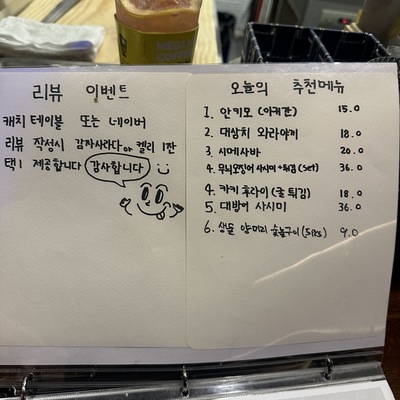 리뷰 이벤트
캐치 테이블 또는 네이버
리뷰 작성시 감자사라다 or 켈리 1잔
택1 제공합니다 감사합니다
오늘의 추천메뉴
1. 안키모 (아귀간) 15.0
2. 대삼치 와라야끼 18.0
3. 시메사바 20.0
4. 무늬오징어 사시미+튀김 (set) 36.0
4. 카키 후라이 (굴 튀김) 18.0
5. 대방어 사시미 36.0
6. 생물 양미리 숯불구이 (5pcs) 9.0